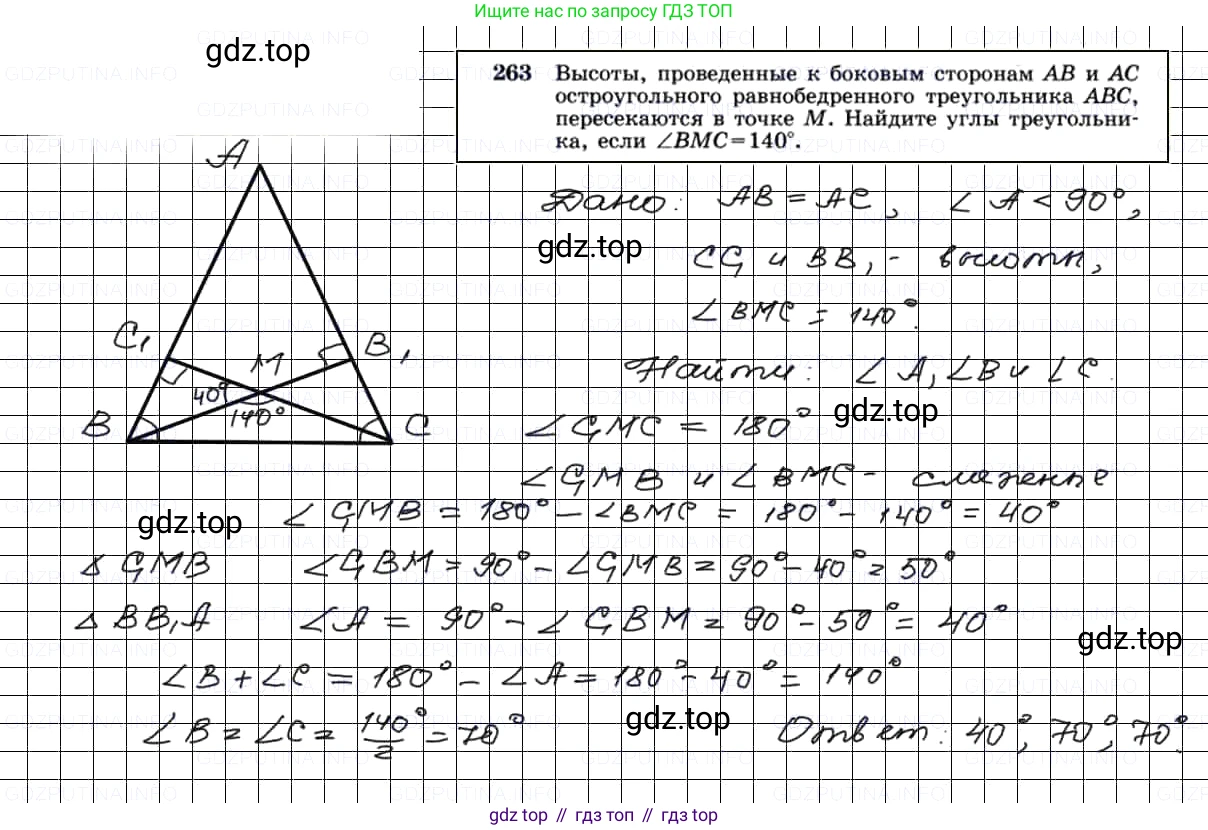 Ищите нас по запросу ГДЗ ТОП
gdz.top
263 Высоты, проведенные к боковым сторонам AB и AC
остроугольного равнобедренного треугольника ABC,
пересекаются в точке M. Найдите углы треугольни-
ка, если ∠BMC=140°.
A
Дано: AB = AC, ∠A < 90°,
gdz.top
CC₁ и BB₁ - высоты,
∠BMC = 140°.
C₁
M
B₁
40°
140°
B
C
Найти: ∠A, ∠B и ∠C.
gdz.top
∠C₁MC = 180°
∠C₁MB и ∠BMC - смежные
gdz.top
∠C₁MB = 180° - ∠BMC = 180° - 140° = 40°
△ C₁MB ∠C₁BM = 90° - ∠C₁MB = 90° - 40° = 50°
△ BB₁A ∠A = 90° - ∠C₁BM = 90° - 50° = 40°
gdz.top
∠B + ∠C = 180° - ∠A = 180° - 40° = 140°
∠B = ∠C = 140°/2 = 70°
gdz.top
Ответ: 40°, 70°, 70°.
gdz top // гдз топ // гдз top
GDZPUTINA.INFO